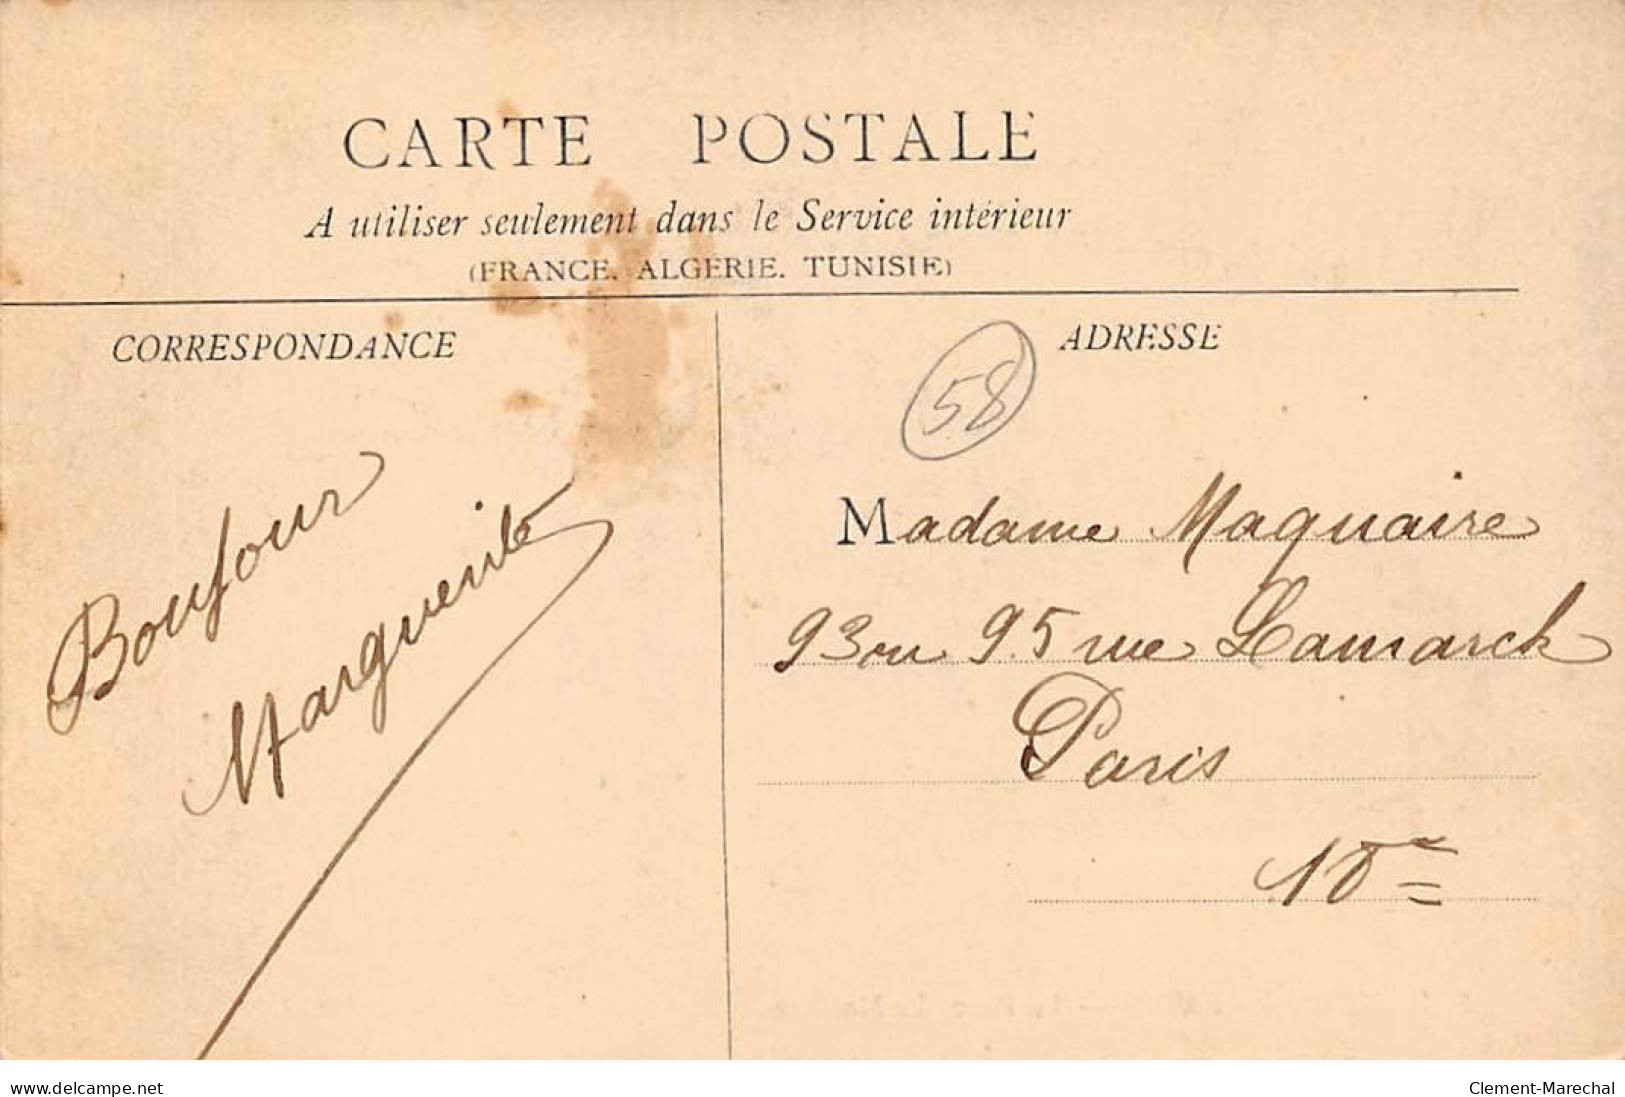 CARTE POSTALE
A utiliser seulement dans le Service intérieur
(FRANCE. ALGÉRIE. TUNISIE)
CORRESPONDANCE
Bonjour
Marguerite
ADRESSE
58
Madame Maquaire
93 ou 95 rue Lamarck
Paris
18e
www.delcampe.net
Clement-Marechal